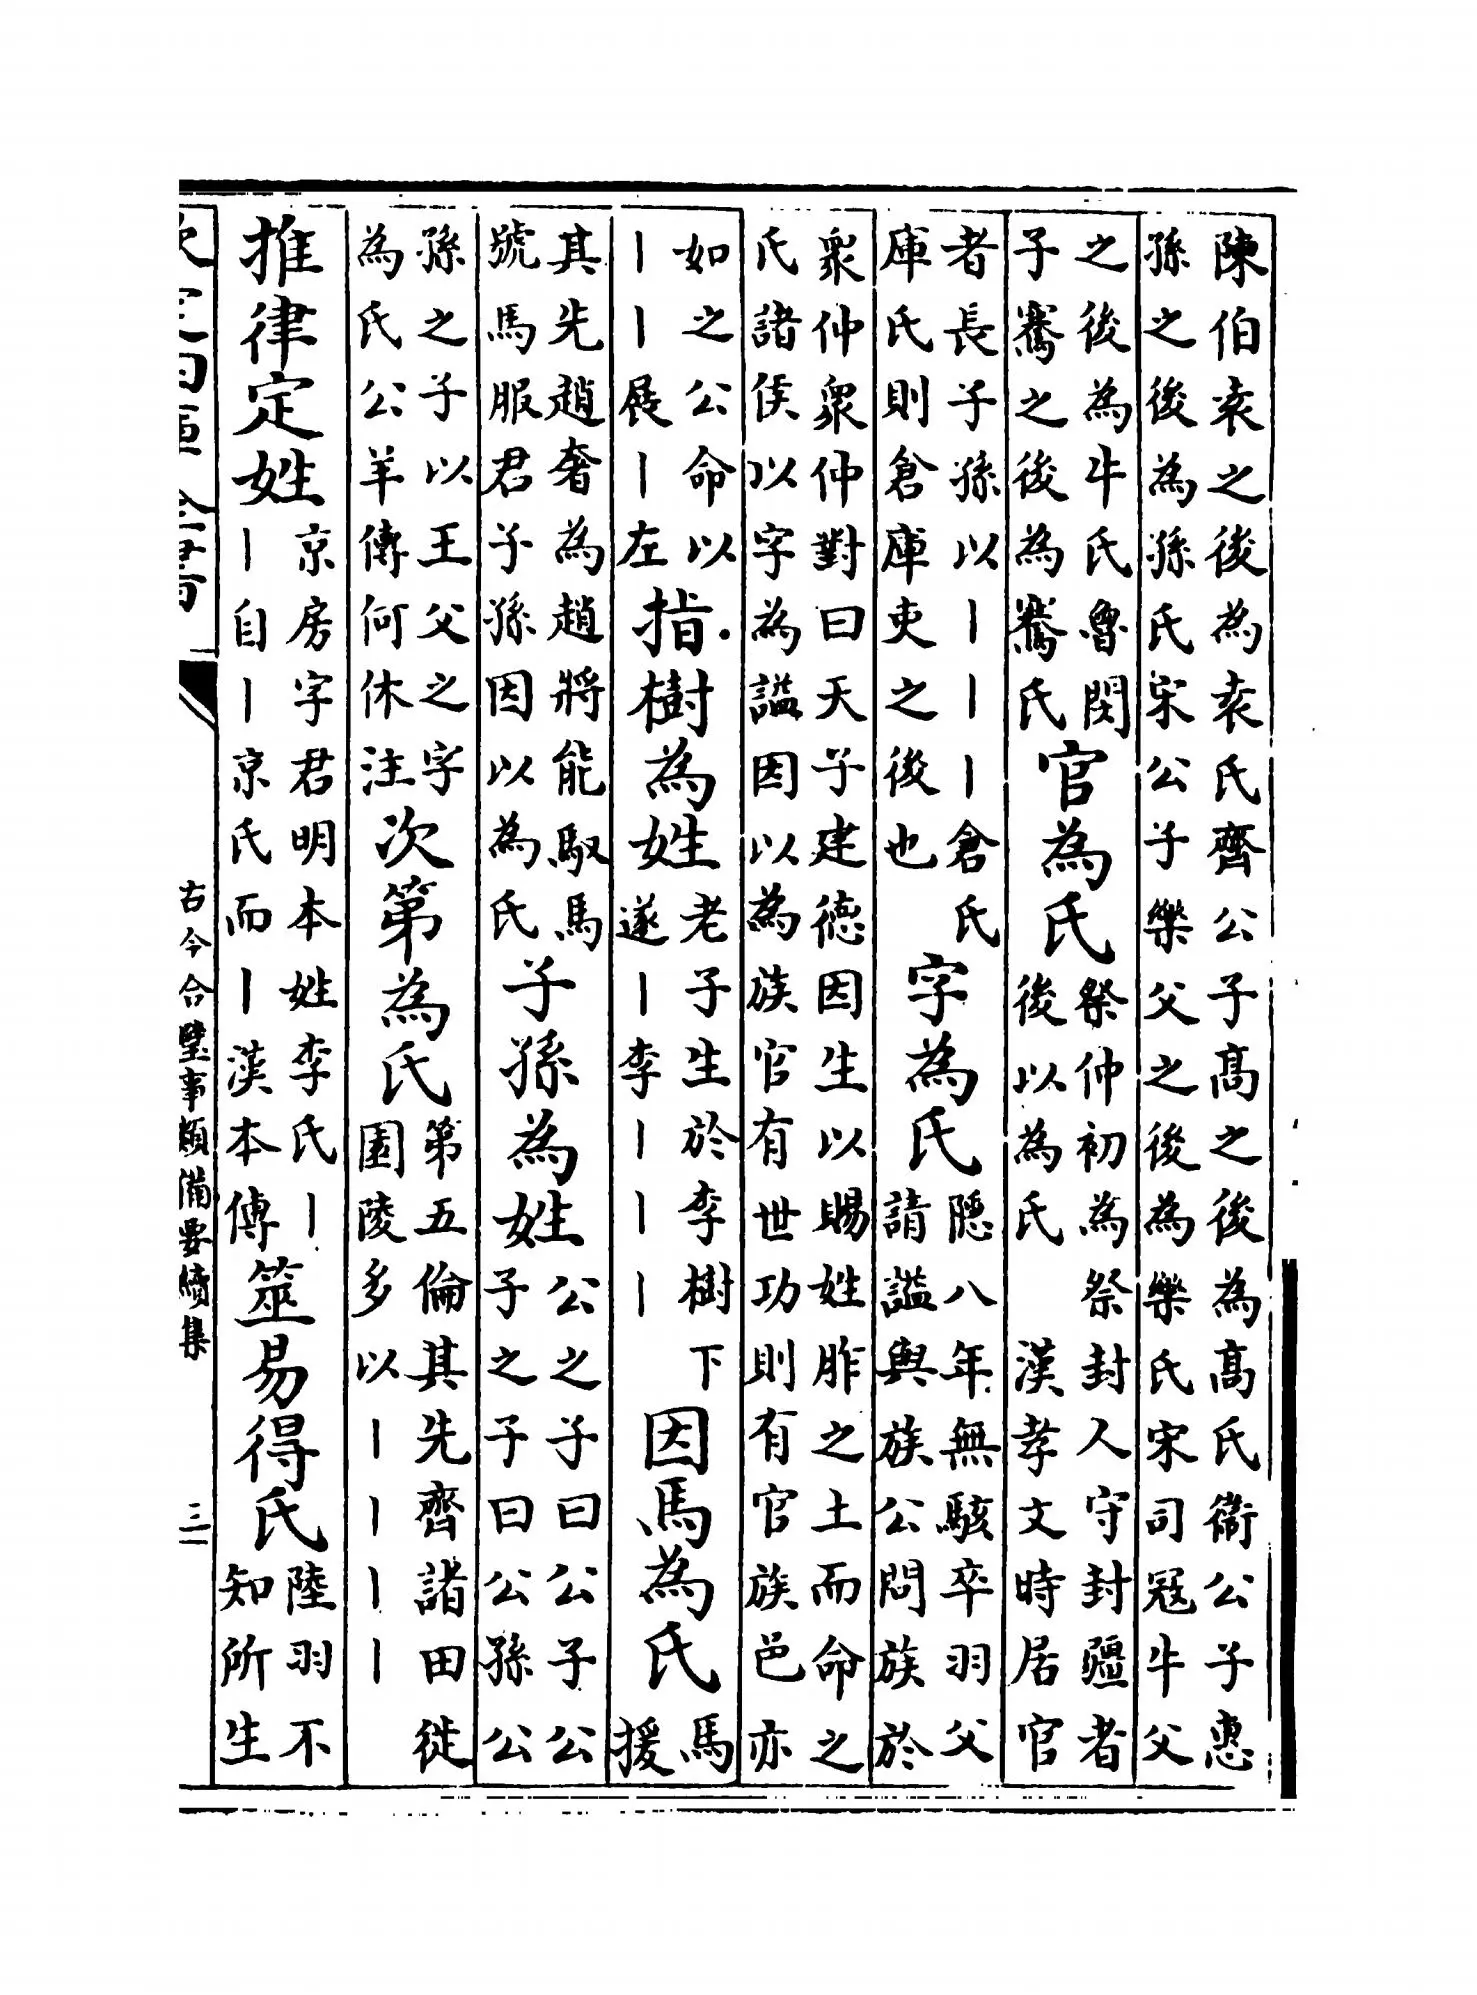 陳伯袁之後為袁氏齊公子髙之後為髙氏衞公子惠
孫之後為孫氏宋公子樂父之後為樂氏宋司冦牛父
之後為牛氏魯閔
子騫之後為騫氏
官為氏
祭仲初為祭封人守封疆者
後以為氏 漢孝文時居官
者長子孫以丨丨丨倉氏
庫氏則倉庫吏之後也
字為氏
隠八年無駭卒羽父
請諡與族公問族於
衆仲衆仲對曰天子建德因生以賜姓胙之土而命之
氏諸侯以字為諡因以為族官有世功則有官族邑亦
如之公命以
丨丨展丨左
指樹為姓
老子生於李樹下
遂丨李丨丨丨
因馬為氏
馬
援
其先趙奢為趙將能馭馬
號馬服君子孫因以為氏
子孫為姓
公之子曰公子公
子之子曰公孫公
孫之子以王父之字
為氏公羊傳何休注
次第為氏
第五倫其先齊諸田徙
園陵多以丨丨丨丨
推律定姓
京房字君明本姓李氏丨
丨自丨京氏而丨漢本傳
筮易得氏
陸羽不
知所生
欽定四庫全書
古今合璧事類備要續集
三